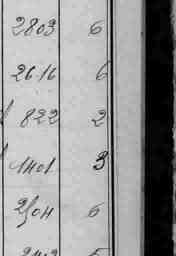 2803 6
2616 6
822 2
1401 3
2504 6